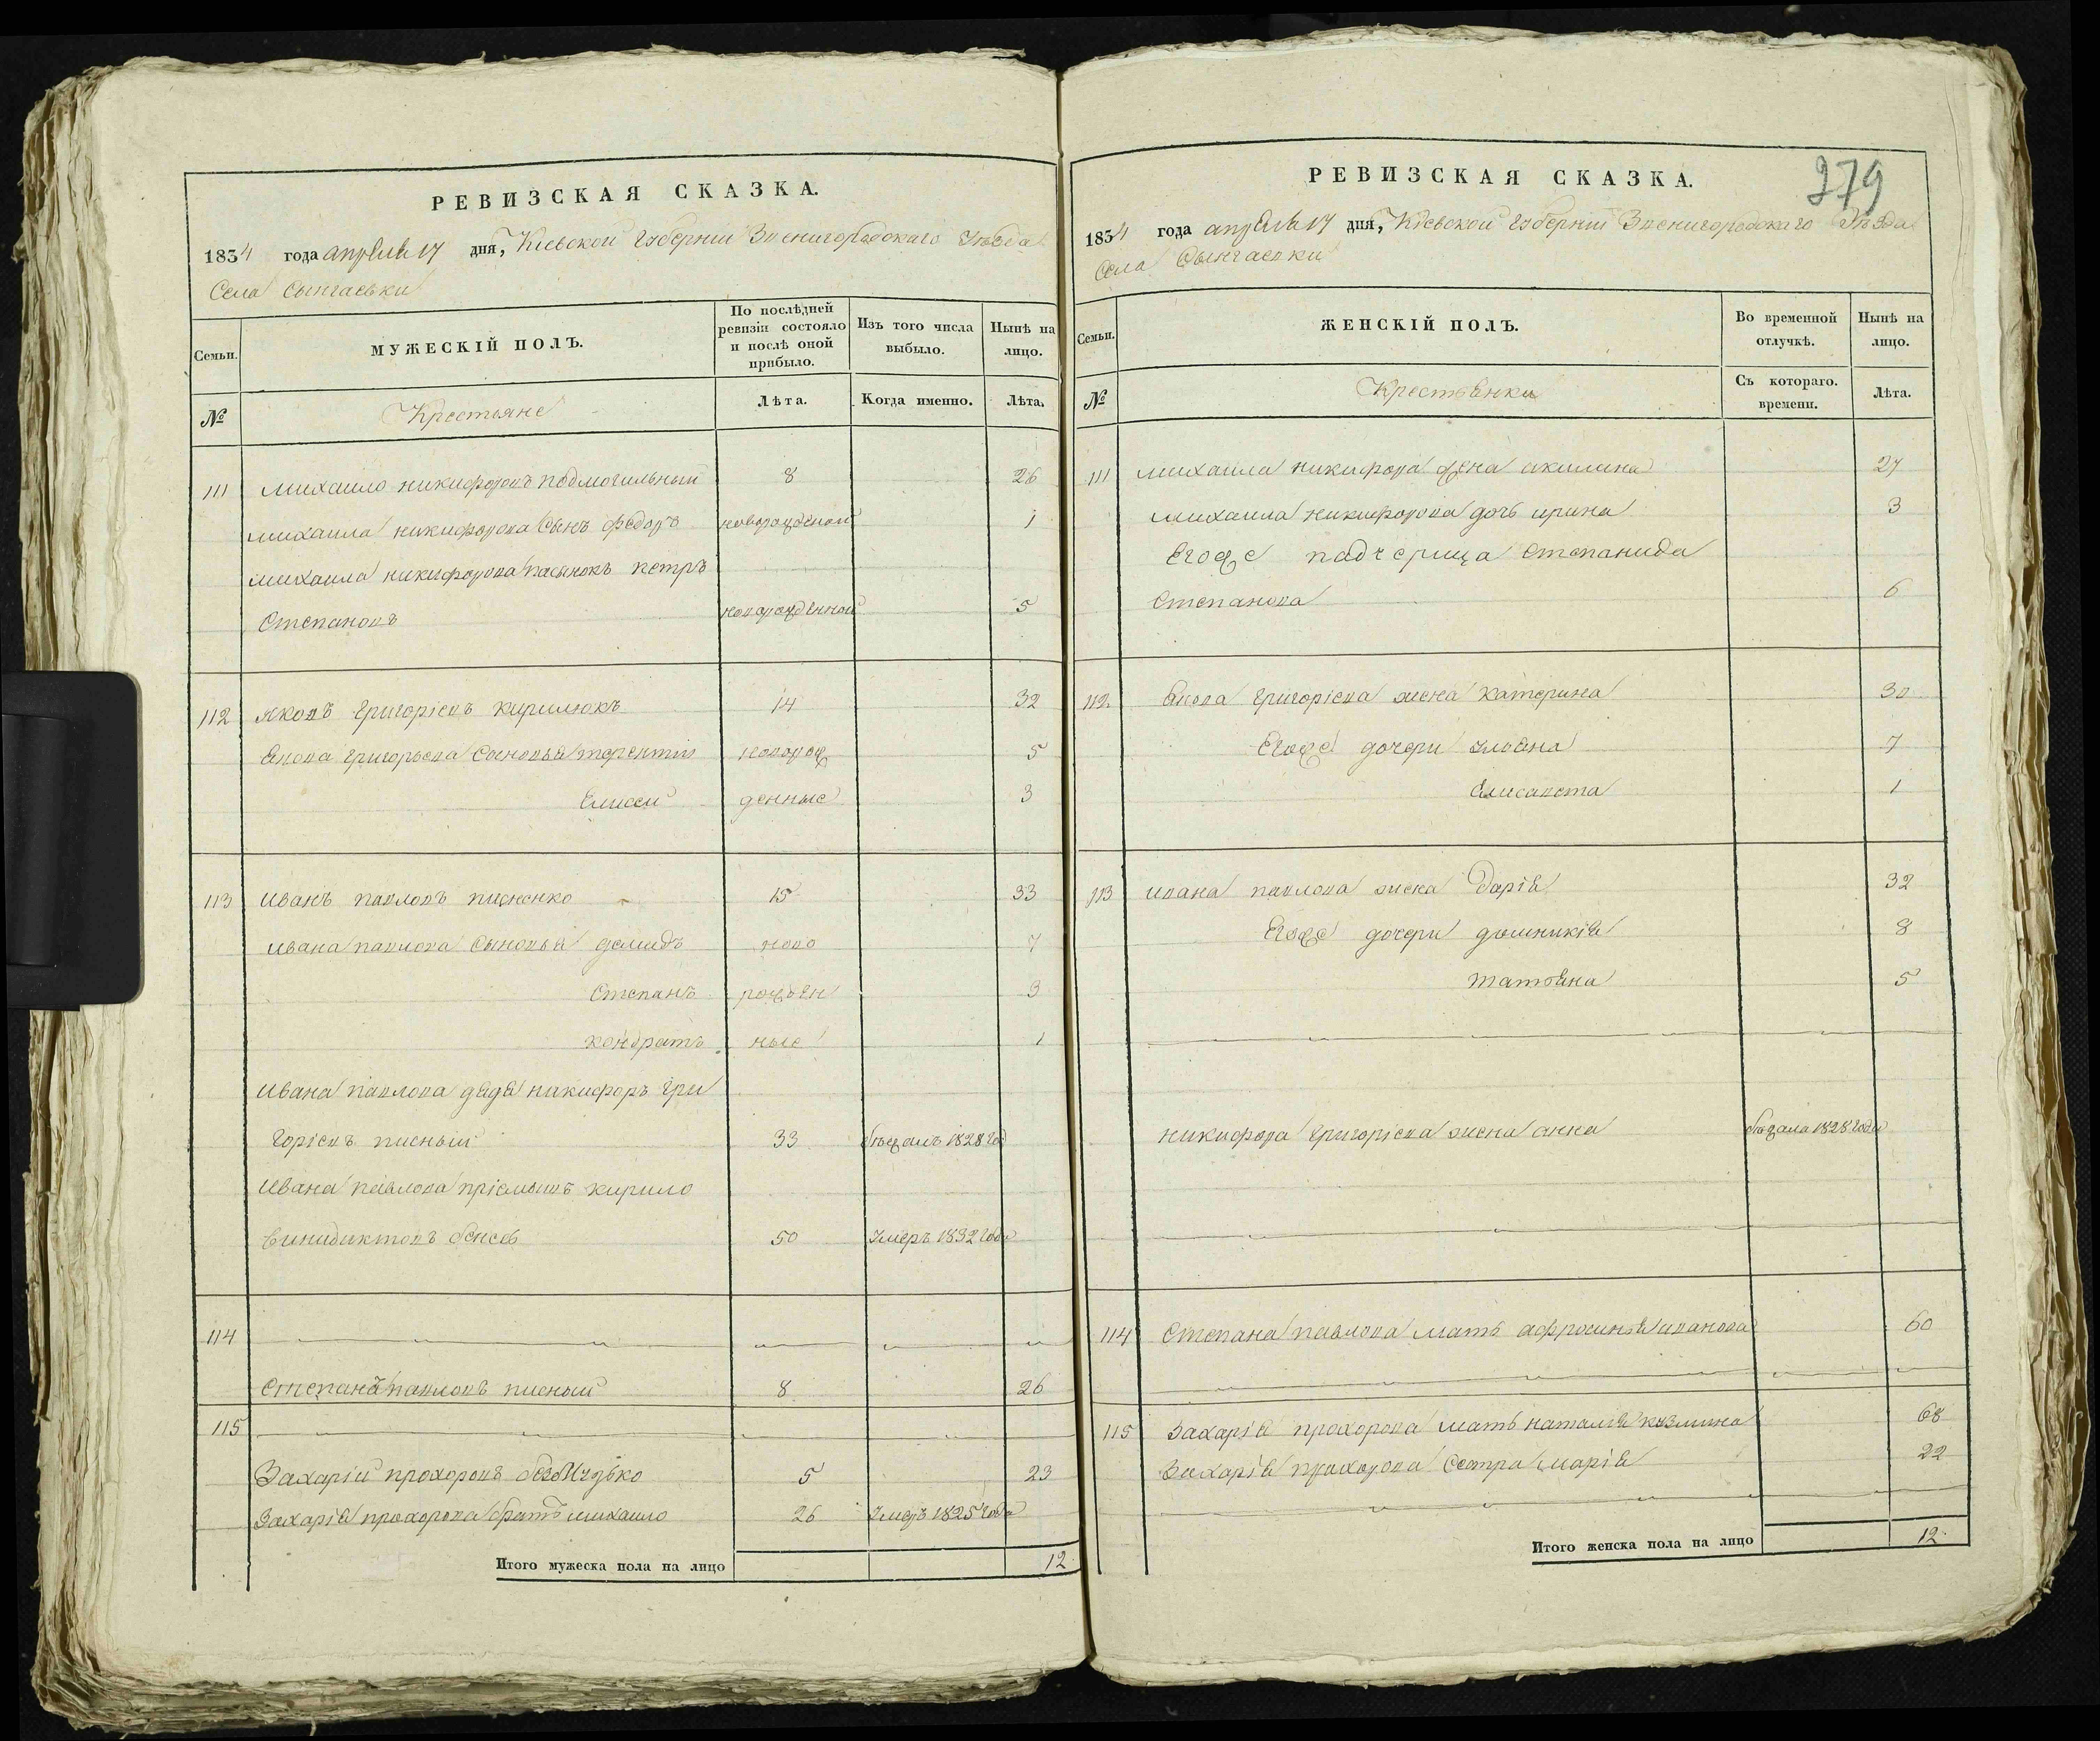 РЕВИЗСКАЯ СКАЗКА.
1834 года апреля 17 дня, Кіевской Губерніи Звенигородскаго Уѣзда
Села Сынгаевки
Семьи.
МУЖЕСКІЙ ПОЛЪ.
По послѣдней ревизіи состояло и послѣ оной прибыло.
Изъ того числа выбыло.
Нынѣ на лицо.
№
Крестьяне
Лѣта.
Когда именно.
Лѣта.
111 михаило никифоровъ подмогильный 8 26
михаила никифорова сынъ федоръ новорожденой 1
михаила никифорова пасынокъ петръ
Степановъ новорожденной 5
112 яковъ григоріевъ кирилюкъ 14 32
якова григорьева сыновья терентій новорож 5
Елисей денные 3
113 иванъ павловъ писненко 15 33
ивана павлова сыновья демидъ ново 7
Степанъ рожден 3
кондратъ ные 1
ивана павлова дядя никифоръ гри
горіевъ писный 33 бѣжалъ 1828 год
ивана павлова пріемышъ кирило
бинидиктовъ 50 Умеръ 1832 года
114
Степанъ павловъ писный 8 26
115
Захарій прохоровъ 5 23
Захарія прохорова братъ михаило 26 Умеръ 1825 года
Итого мужеска пола на лицо 12
279
РЕВИЗСКАЯ СКАЗКА.
1834 года апреля 17 дня, Кіевской Губерніи Звенигородскаго Уѣзда
Села Сынгаевки
Семьи.
ЖЕНСКІЙ ПОЛЪ.
Во временной отлучкѣ.
Нынѣ на лицо.
№
Крестьянки
Съ котораго. времени.
Лѣта.
111 михаила никифора жена акилина 27
михаила никифорова дочь ирина 3
Егоже падчерица Степанида
Степанова 6
112 якова григоріева жена катерина 30
Егоже дочери ульяна 7
Елисавета 1
113 ивана павлова жена дарія 32
Егоже дочери домникія 8
татьяна 5
никифора григоріева жена анна бѣжала 1828 года
114 Степана павлова мать афросинья иванова 60
115 Захарія прохорова мать наталія кузмина 68
Захарія прохорова Сестра марія 22
Итого женска пола на лицо 12